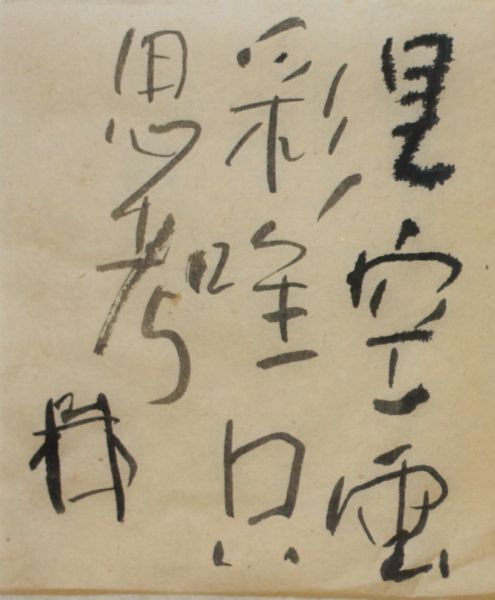 星空雲
彩唯只
思考